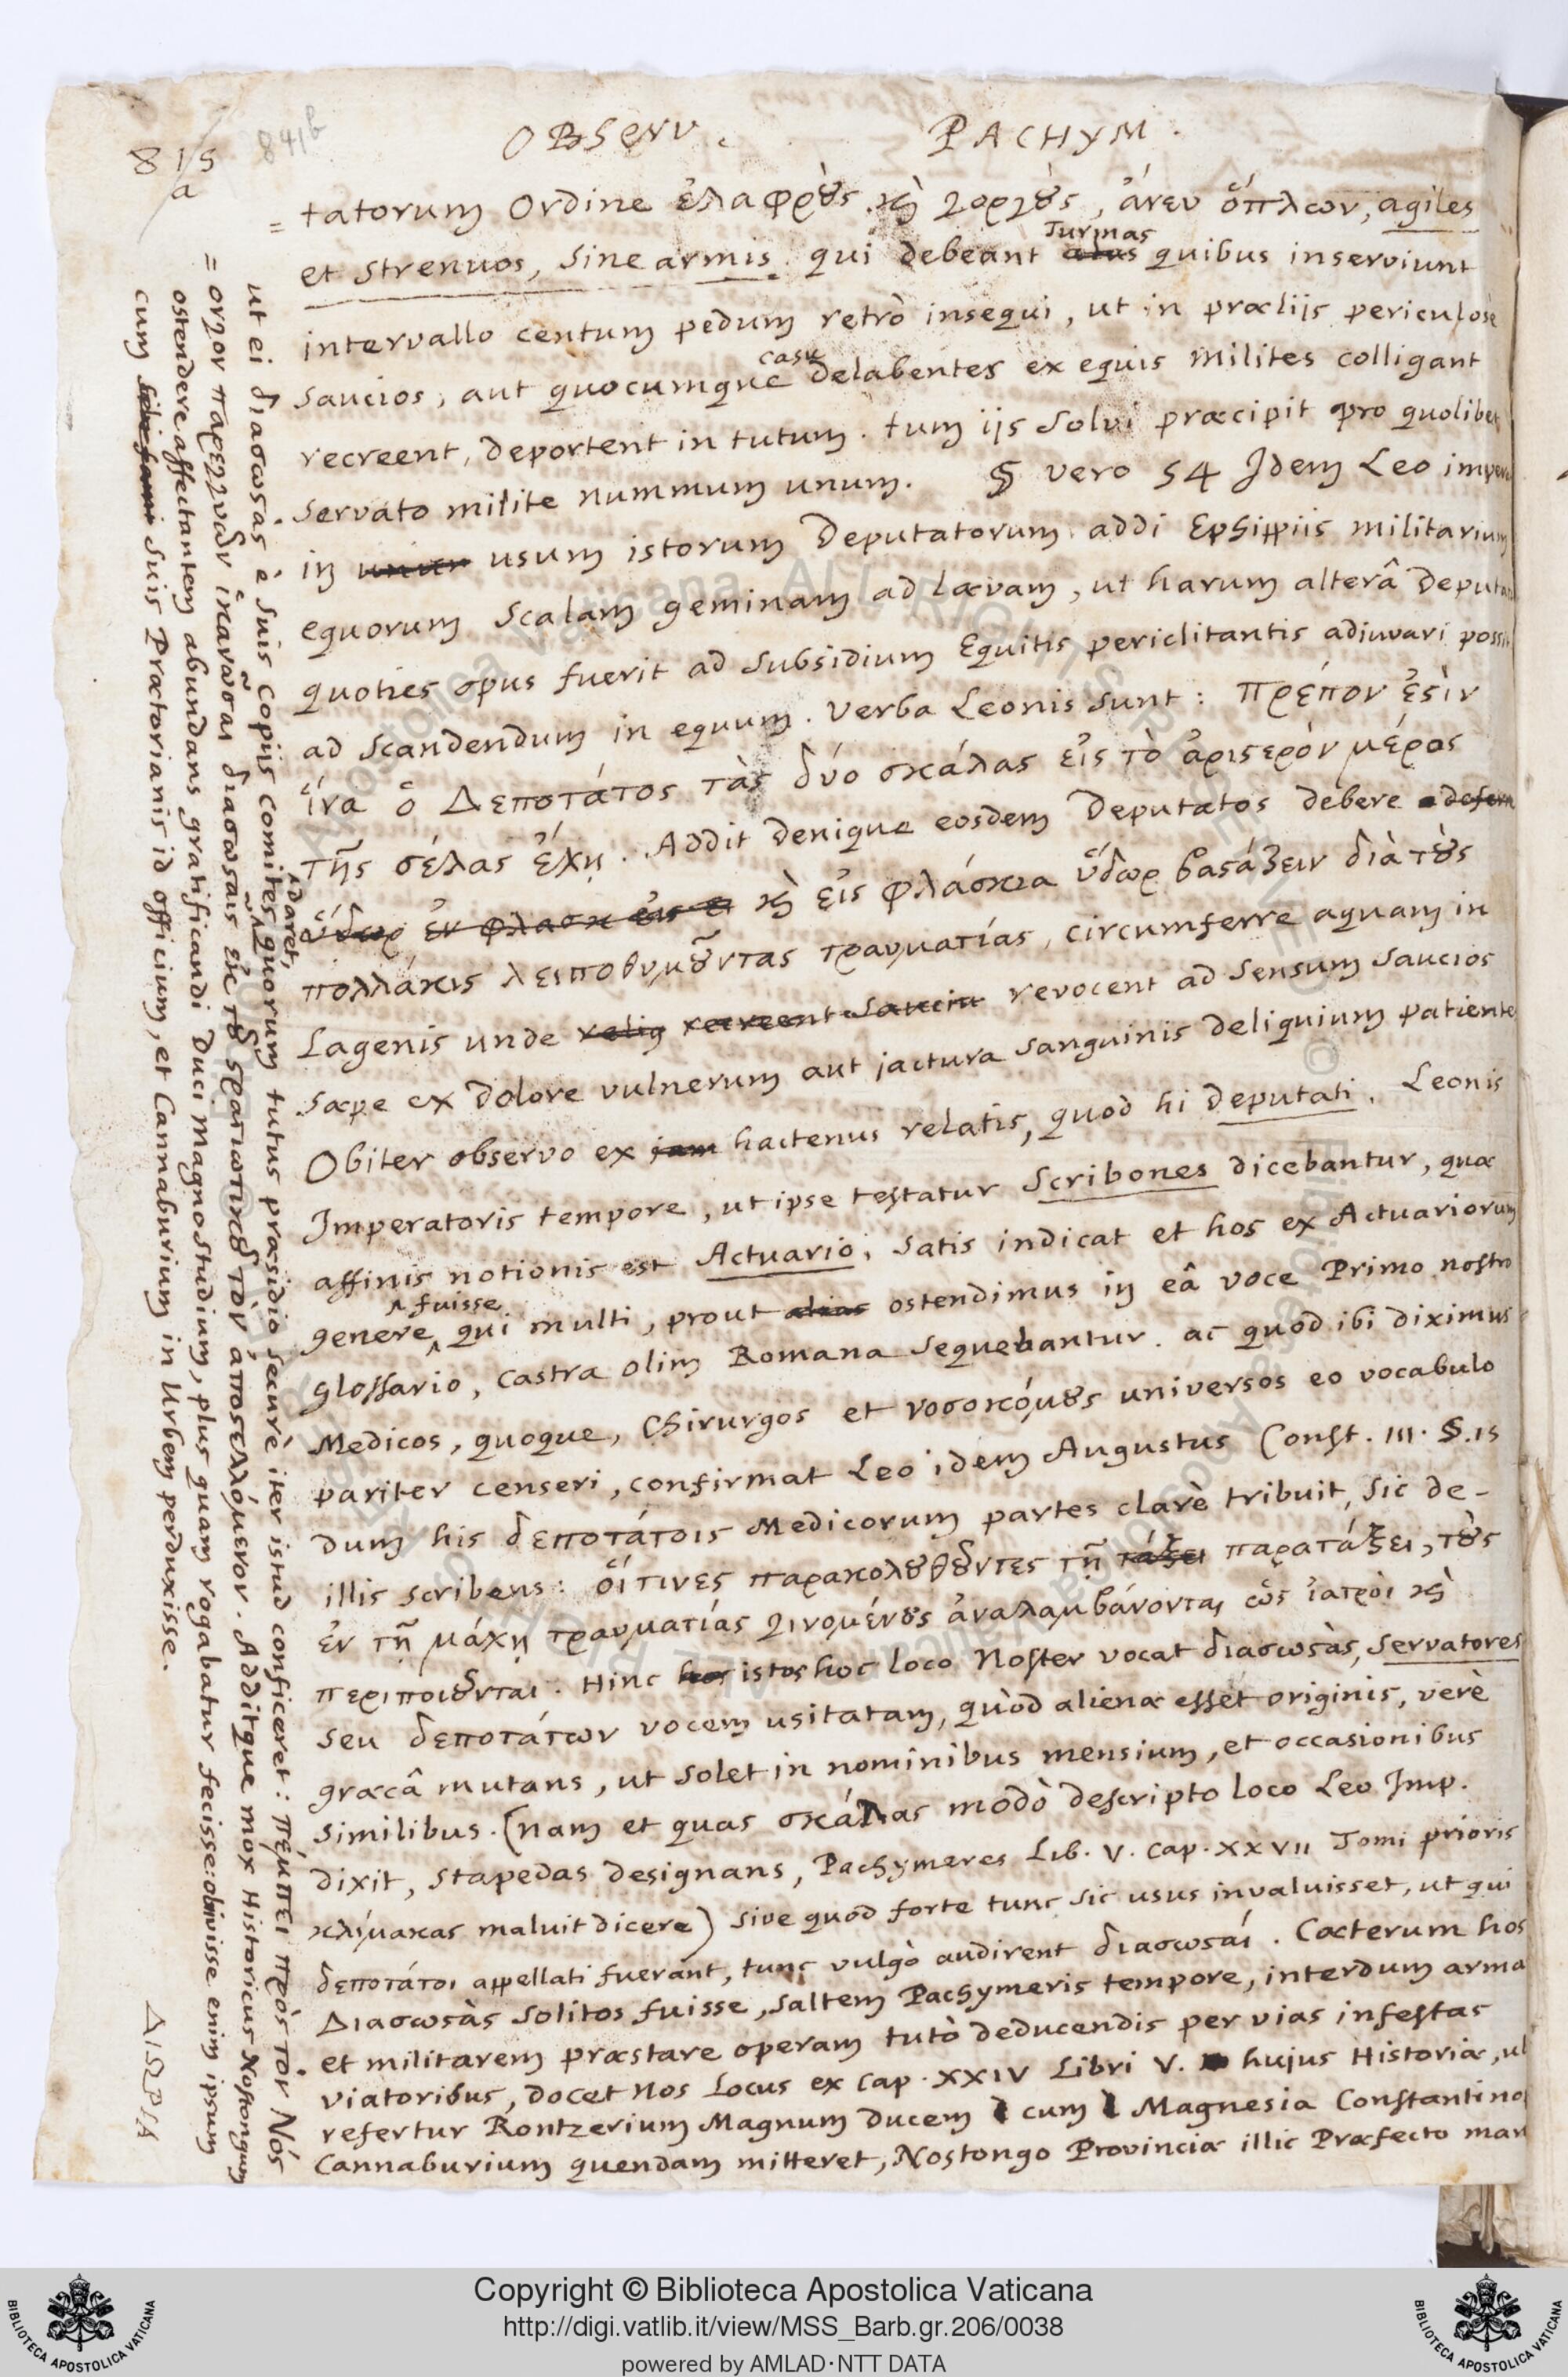 815
a
841b
OBSERV. PACHYM.
tatorum Ordine ἐλαφρȣ̀ς. ϗ̀ γοργȣ̀ς, ἄνευ ὅπλων, agiles
Turmas
et strenuos, sine armis, qui debeant alas quibus inserviunt
intervallo centum pedum retrò insequi, ut in prælijs periculosè
casu
saucios, aut quocumque delabentes ex equis milites colligant
recreent, deportent in tutum. tum ijs solvi præcipit pro quolibet
servato milite nummum unum. § vero 54 Idem Leo imper
in usum istorum Deputatorum addi Ephippiis militarium
equorum scalam geminam ad lævam, ut harum alterâ Deputa
quoties opus fuerit ad subsidium Equitis periclitantis adiuvari possi
ad scandendum in equum. Verba Leonis sunt: πρέπον ἐϛὶν
ἵνα ὁ Δεποτάτος τὰς δύο σκάλας εἰς τὸ ἀριϛερὸν μέρος
τῆς σέλας ἔχῃ. Addit denique eosdem Deputatos debere defern
ὕδωρ ἐν φλασκ εἰς ϗ̀ εἰς φλάσκια ὕδωρ βαϛάζειν διὰ τȣ̀ς
πολλάκις λειποθυμȣ͂ντας τραυματίας, circumferre aquam in
Lagenis unde relig recreent saucin revocent ad sensum saucios
sæpe ex dolore vulnerum aut jactura sanguinis deliquium patiente
Obiter observo ex jam hactenus relatis, quod hi deputati, Leonis
Imperatoris tempore, ut ipse testatur Scribones dicebantur, quæ
affinis notionis est Actuario, satis indicat et hos ex Actuariorum
fuisse
genere, qui multi, prout alias ostendimus in eâ voce Primo nostro
glossario, castra olim Romana sequebantur. ac quod ibi diximus
Medicos, quoque, Chirurgos et νοσοκόμȣς universos eo vocabulo
pariter censeri, confirmat Leo idem Augustus Const. III. §.15
dum his δεποτάτοις Medicorum partes clarè tribuit, sic de-
illis scribens: οἵτινες παρακολȣθȣ͂ντες τῇ τάξει παρατάξει, τȣ̀ς
ἐν τῇ μάχῃ τραυματίας γινομένȣς ἀναλαμβάνονται ὡς ἰατρὸι ϗ̀
περιποιȣ͂νται. Hinc hos istos hoc loco Noster vocat διασωϛὰς, servatores
seu δεποτάτων vocem usitatam, quòd alienæ esset originis, verè
græcâ mutans, ut solet in nominibus mensium, et occasionibus
similibus. (nam et quas σκάλας modò descripto loco Leo Imp.
dixit, stapedas designans, Pachymeres Lib. V. cap. XXVII Tomi prioris
κλίμακας maluit dicere) sive quod forte tunc sic usus invaluisset, ut qui
δεποτάτοι appellati fuerant, tunc vulgò audirent διασωϛαί. Cæterum hos
Διασωϛὰς solitos fuisse, saltem Pachymeris tempore, interdum arma
et militarem præstare operam tutò deducendis per vias infestas
viatoribus, docet nos Locus ex cap. XXIV Libri V. hujus Historiæ, ub
refertur Rontzerium Magnum Ducem cum Magnesia Constantino
Cannaburium quendam mitteret, Nostongo Provinciæ illic Præfecto man
idaret,
ut ei διασωϛὰς è suis copiis comites quorum tutus præsidio securè iter istud conficeret: πέμπει πρὸς τὸν Νόϛ
ογγον παρεγγυῶν ἱκανῶσαι διασωϛαῖς ἐκ τȣ͂ ϛρατιωτικȣ͂ τὸν ἀποϛελλόμενον. Additque mox Historicus Nostongum
ostendere affectantem abundans gratificandi Duci magno studium, plus quam rogabatur fecisse: obivisse enim ipsum
cum suis Prætorianis id officium, et Cannaburium in Urbem perduxisse.
ΔΙΩΡΙΑ
Copyright © Biblioteca Apostolica Vaticana
http://digi.vatlib.it/view/MSS_Barb.gr.206/0038
powered by AMLAD·NTT DATA
BIBLIOTECA APOSTOLICA VATICANA
BIBLIOTECA APOSTOLICA VATICANA